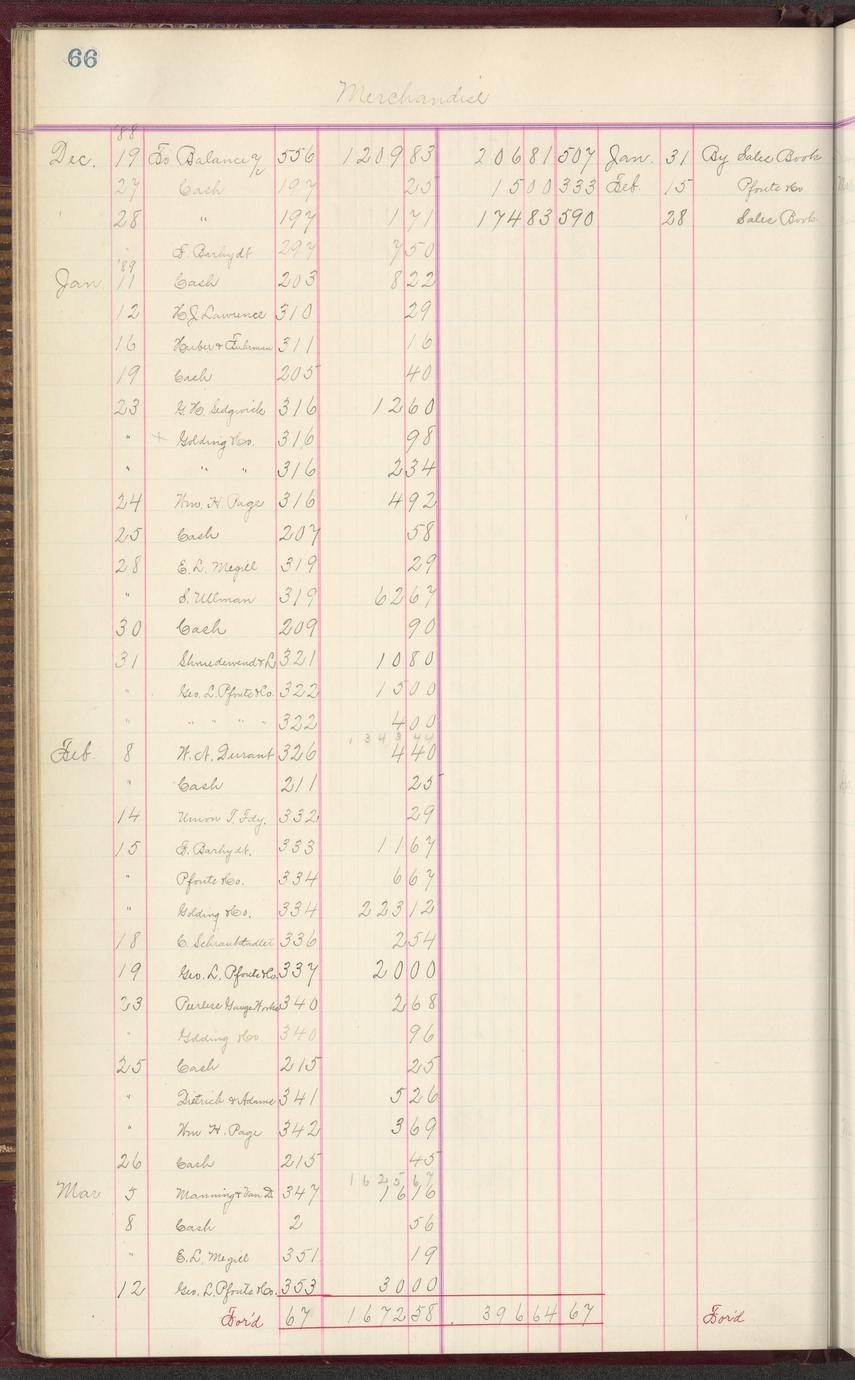 66
Merchandise
'88
Dec. 19 To Balance a/c 556 1209 83 206 81 507 Jan. 31 By Sales Book
27 Cash 197 25 15 00 333 Feb. 15 Pfouts & Co
28 " 197 1 71 174 83 590 28 Sales Book
E. Barhydt 297 7 50
'89
Jan 11 Cash 203 8 22
12 H.J. Lawrence 310 29
16 Huber & Fuhrman 311 16
19 Cash 205 40
23 G. H. Sedgwick 316 12 60
" + Golding & Co. 316 98
" " " 316 2 34
24 Wm. H. Page 316 4 92
25 Cash 207 58
28 E. L. Megill 319 29
" S. Ullman 319 62 67
30 Cash 209 90
31 Shniedewend & L 321 10 80
" Geo. L. Pfouts & Co. 322 15 00
" " " " " 322 4 00
1 3 4 3 44
Feb. 8 W. A. Durant 326 4 40
" Cash 211 25
14 Union T. Fdy. 332 29
15 E. Barhydt. 333 11 67
" Pfouts & Co. 334 6 67
" Golding & Co. 334 223 12
18 C. Schraubstadter 336 2 54
19 Geo. L. Pfouts & Co. 337 20 00
23 Peerless Gauge Works 340 2 68
" Golding & Co. 340 96
25 Cash 215 25
" Dietrich & Adams 341 5 26
" Wm H. Page 342 3 69
26 Cash 215 45
1 6 2 5 67
Mar 5 Manning & Van D. 347 16 16
8 Cash 2 56
" E. L. Megill 351 19
12 Geo. L. Pfouts & Co. 353 30 00
For'd 67 1672 58 396 64 67 For'd